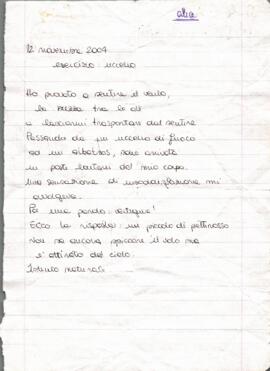 alice
12 novembre 2004
esercizio: uccello
Ho provato a sentire il vento,
la brezza tra le ali
e lasciarmi trasportare dal sentire
Passando da un uccello di fuoco
ad un albatros, sono andata
in posti lontani del mio corpo.
Una sensazione di insoddisfazione mi
avvolgeva.
Poi una parola: vertigine!
Ecco la risposta: un piccolo di pettirosso
Non sa ancora spiccare il volo ma
e' attirato dal cielo.
Istinto naturale